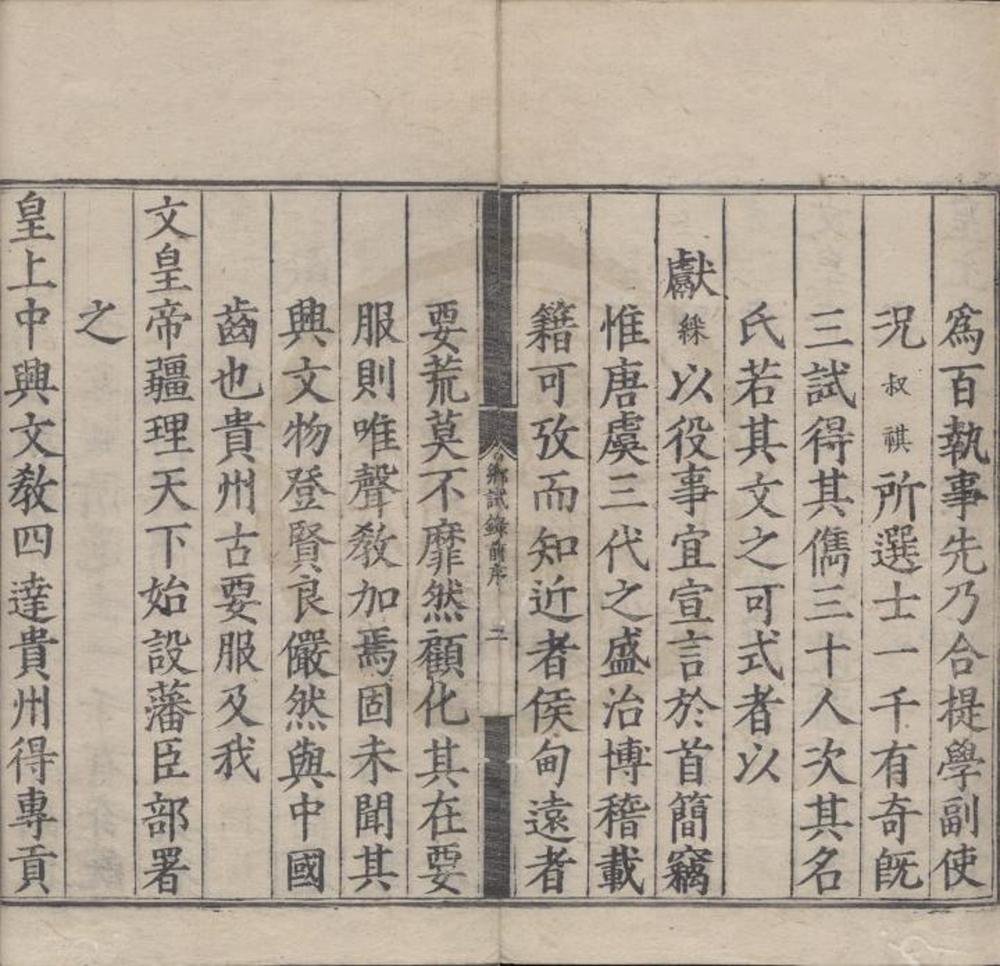 爲百執事先乃合提學副使
況叔祺所選士一千有奇旣
三試得其儁三十人次其名
氏若其文之可式者以
獻綵以役事宜宣言於首簡竊
惟唐虞三代之盛治博稽載
籍可攷而知近者侯甸遠者
鄉試錄前序 二
要荒莫不靡然顧化其在要
服則唯聲敎加焉固未聞其
興文物登賢良儼然與中國
齒也貴州古要服及我
文皇帝疆理天下始設藩臣部署
之
皇上中興文敎四達貴州得專貢